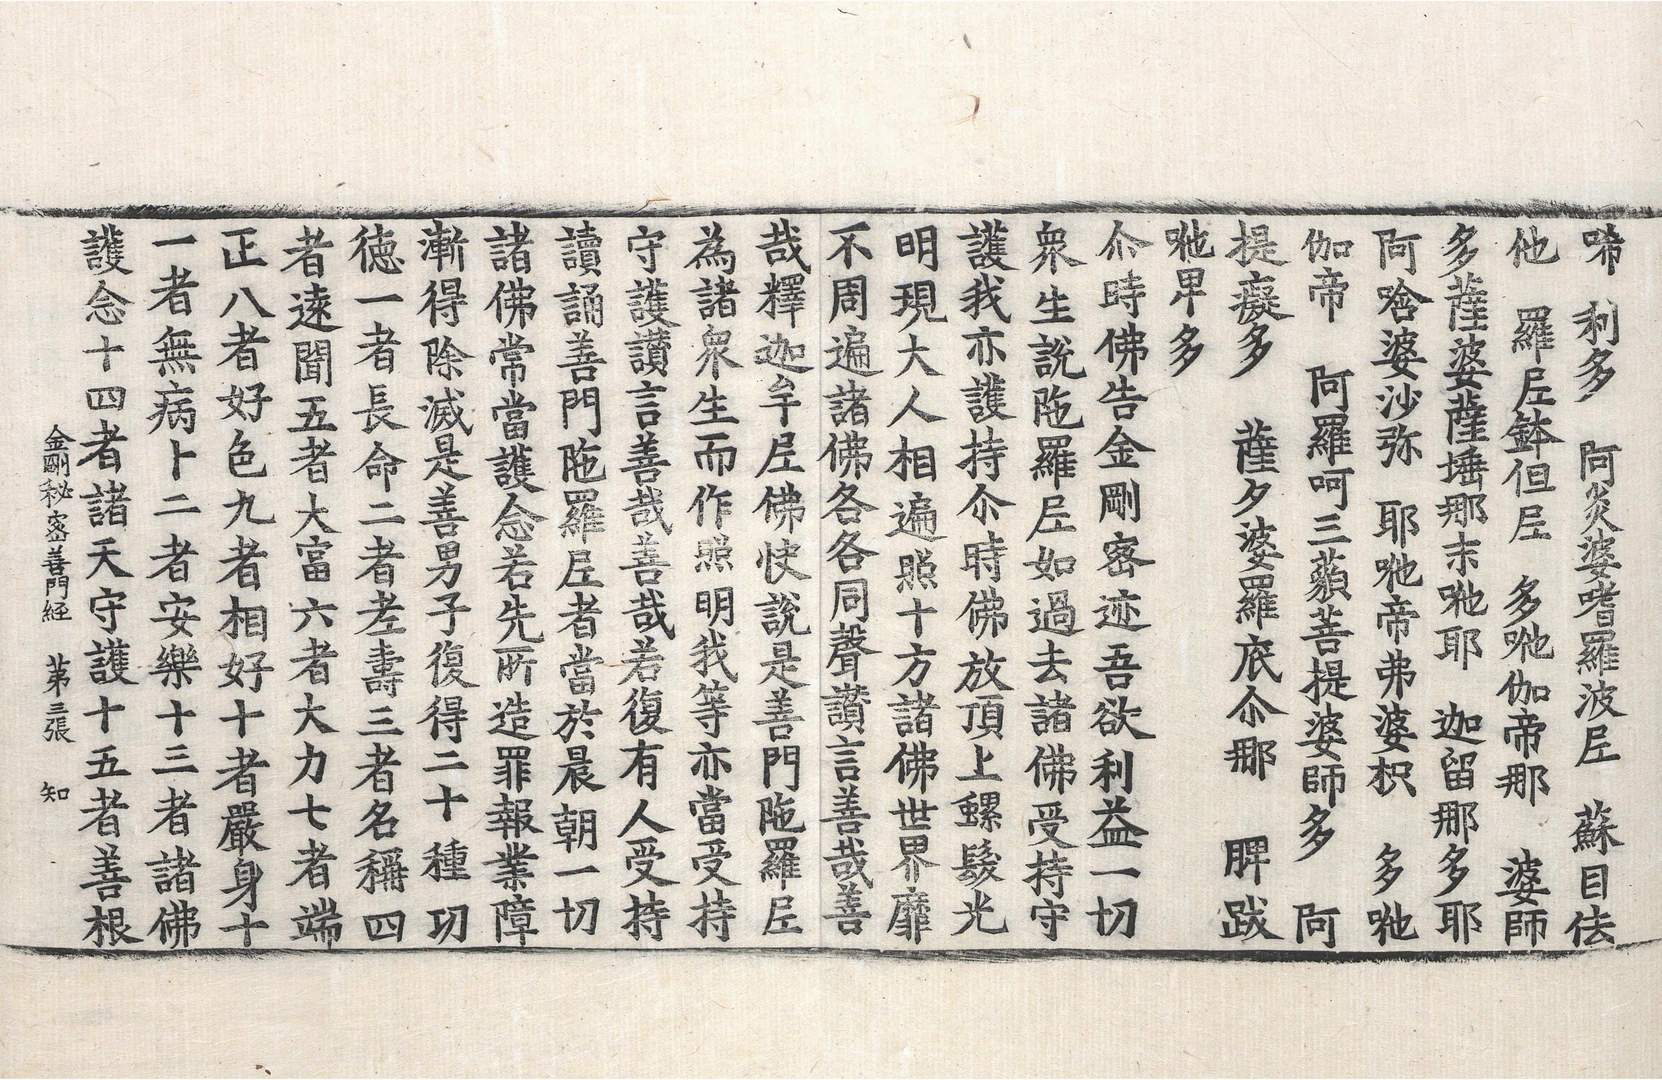 唏 利多 阿炎婆嗜羅波𡰱 蘇目佉
他 羅𡰱鉢但𡰱 多𠯈伽帝那 婆師
多薩婆薩埵那末𠯈耶 迦留那多耶
阿唅婆沙弥 耶𠯈帝弗婆枳 多𠯈
伽帝 阿羅呵三藐菩提婆師多 阿
提癡多 薩夕婆羅底尒那 脾跋
𠯈卑多
尒時佛告金剛密迹吾欲利益一切
衆生說陁羅𡰱如過去諸佛受持守
護我亦護持尒時佛放頂上螺髮光
明現大人相遍照十方諸佛世界靡
不周遍諸佛各各同聲讚言善哉善
哉釋迦牟𡰱佛快說是善門陁羅𡰱
為諸衆生而作照明我等亦當受持
守護讚言善哉善哉若復有人受持
讀誦善門陁羅𡰱者當於晨朝一切
諸佛常當護念若先所造罪報業障
漸得除滅是善男子復得二十種功
德一者長命二者老壽三者名稱四
者遠聞五者大富六者大力七者端
正八者好色九者相好十者嚴身十
一者無病十二者安樂十三者諸佛
護念十四者諸天守護十五者善根
金剛秘密善門経 苐三張 知